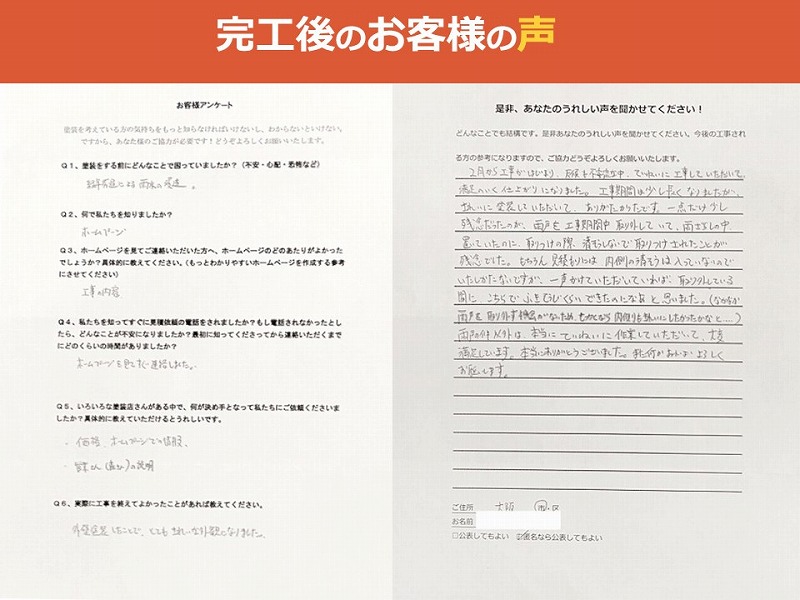 完工後のお客様の声
お客様アンケート
塗装を考えている方の気持ちをもっと知らなければいけないし、わからないといけない。
ですから、あなた様のご協力が必要です！どうぞよろしくお願いいたします。
Q1、塗装をする前にどんなことで困っていましたか？（不安・心配・恐怖など）
による雨水の浸透。
Q2、何で私たちを知りましたか？
ホームページ
Q3、ホームページを見てご連絡いただいた方へ、ホームページのどのあたりがよかった
でしょうか？具体的に教えてください。（もっとわかりやすいホームページを作成する参考
にさせてください）
工事の内容
Q4、私たちを知ってすぐに見積依頼の電話をされましたか？もし電話されなかったとし
たら、どんなことが不安になりましたか？最初に知ってくださってから連絡いただくまで
にどのくらいの時間がありましたか？
ホームページを見てすぐ連絡しました。
Q5、いろいろな塗装店さんがある中で、何が決め手となって私たちにご依頼くださいま
したか？具体的に教えていただけるとうれしいです。
・価格、ホームページでの情報、
・の説明
Q6、実際に工事を終えてよかったことがあれば教えてください。
外壁塗装したことで、とてもきれいな外観になりました。
是非、あなたのうれしい声を聞かせてください！
どんなことでも結構です。是非あなたのうれしい声を聞かせてください。今後の工事され
る方の参考になりますので、ご協力どうぞよろしくお願いいたします。
2月から工事がはじまり、ていねいに工事していただいて、
満足のいく仕上がりになりました。工事期間は少し長くなりましたが、
きれいに塗装していただいて、ありがたかったです。一点だけ少し
残念だったのが、雨戸を工事期間中取り外していて、雨ざらしの中
置いていたのに、取りつけの際、清そうしないで取りつけされたことが
残念でした。もちろん見積りには内側の清そうは入っていないので
いたしかたないですが、一声かけていただいていれば、取り外している
間に、こちらでふきそうじくらいできたのになぁと思いました。（なかなか
雨戸を取り外す機会がないため、内側もきれいにしたかったかなと…。）
雨戸の件以外は、本当にていねいに作業していただいて、大変
満足しています。本当にありがとうございました。また何かあればよろしく
お願いします。
ご住所 大阪 市・区
お名前
□公表してもよい ☑匿名なら公表してもよい